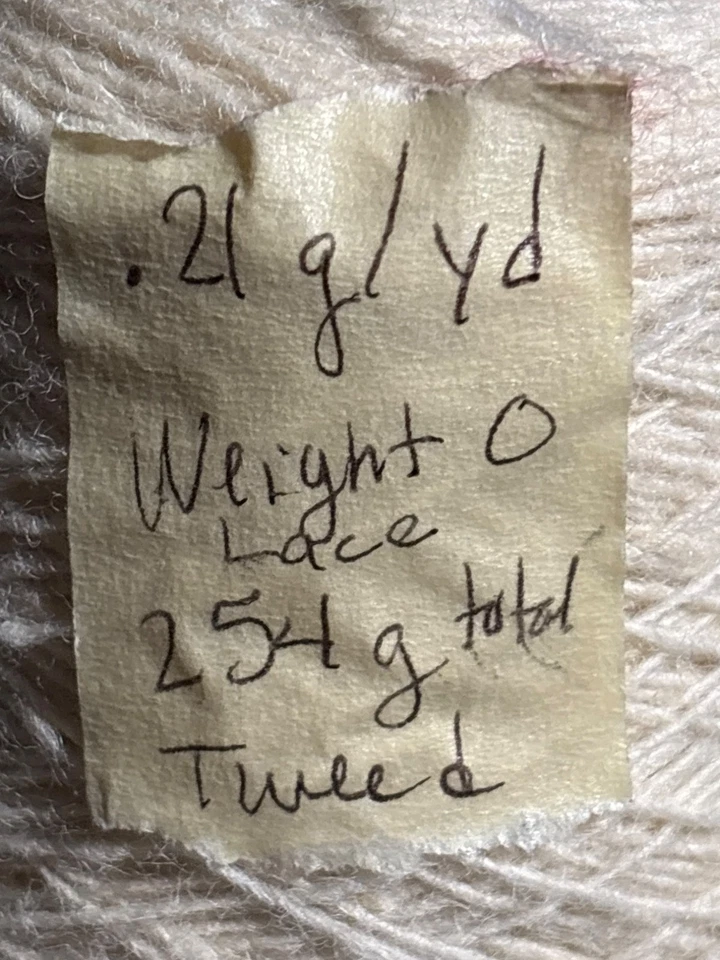 .21 g/yd
Weight 0
Lace
254 g total
Tweed